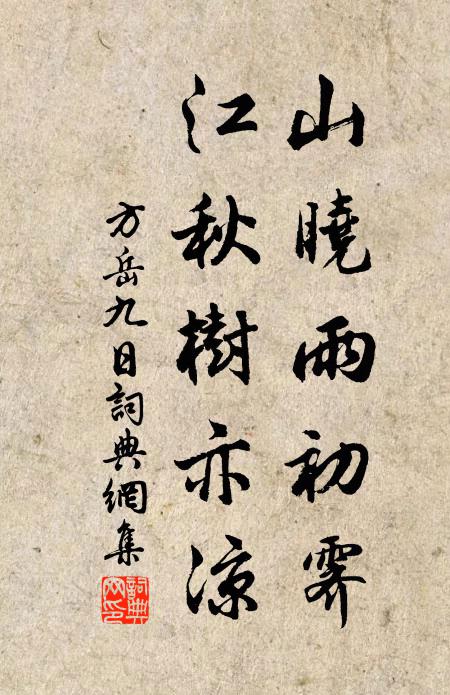 山曉雨初霽
江秋樹亦涼
方岳九日詞典網集
詞典網印